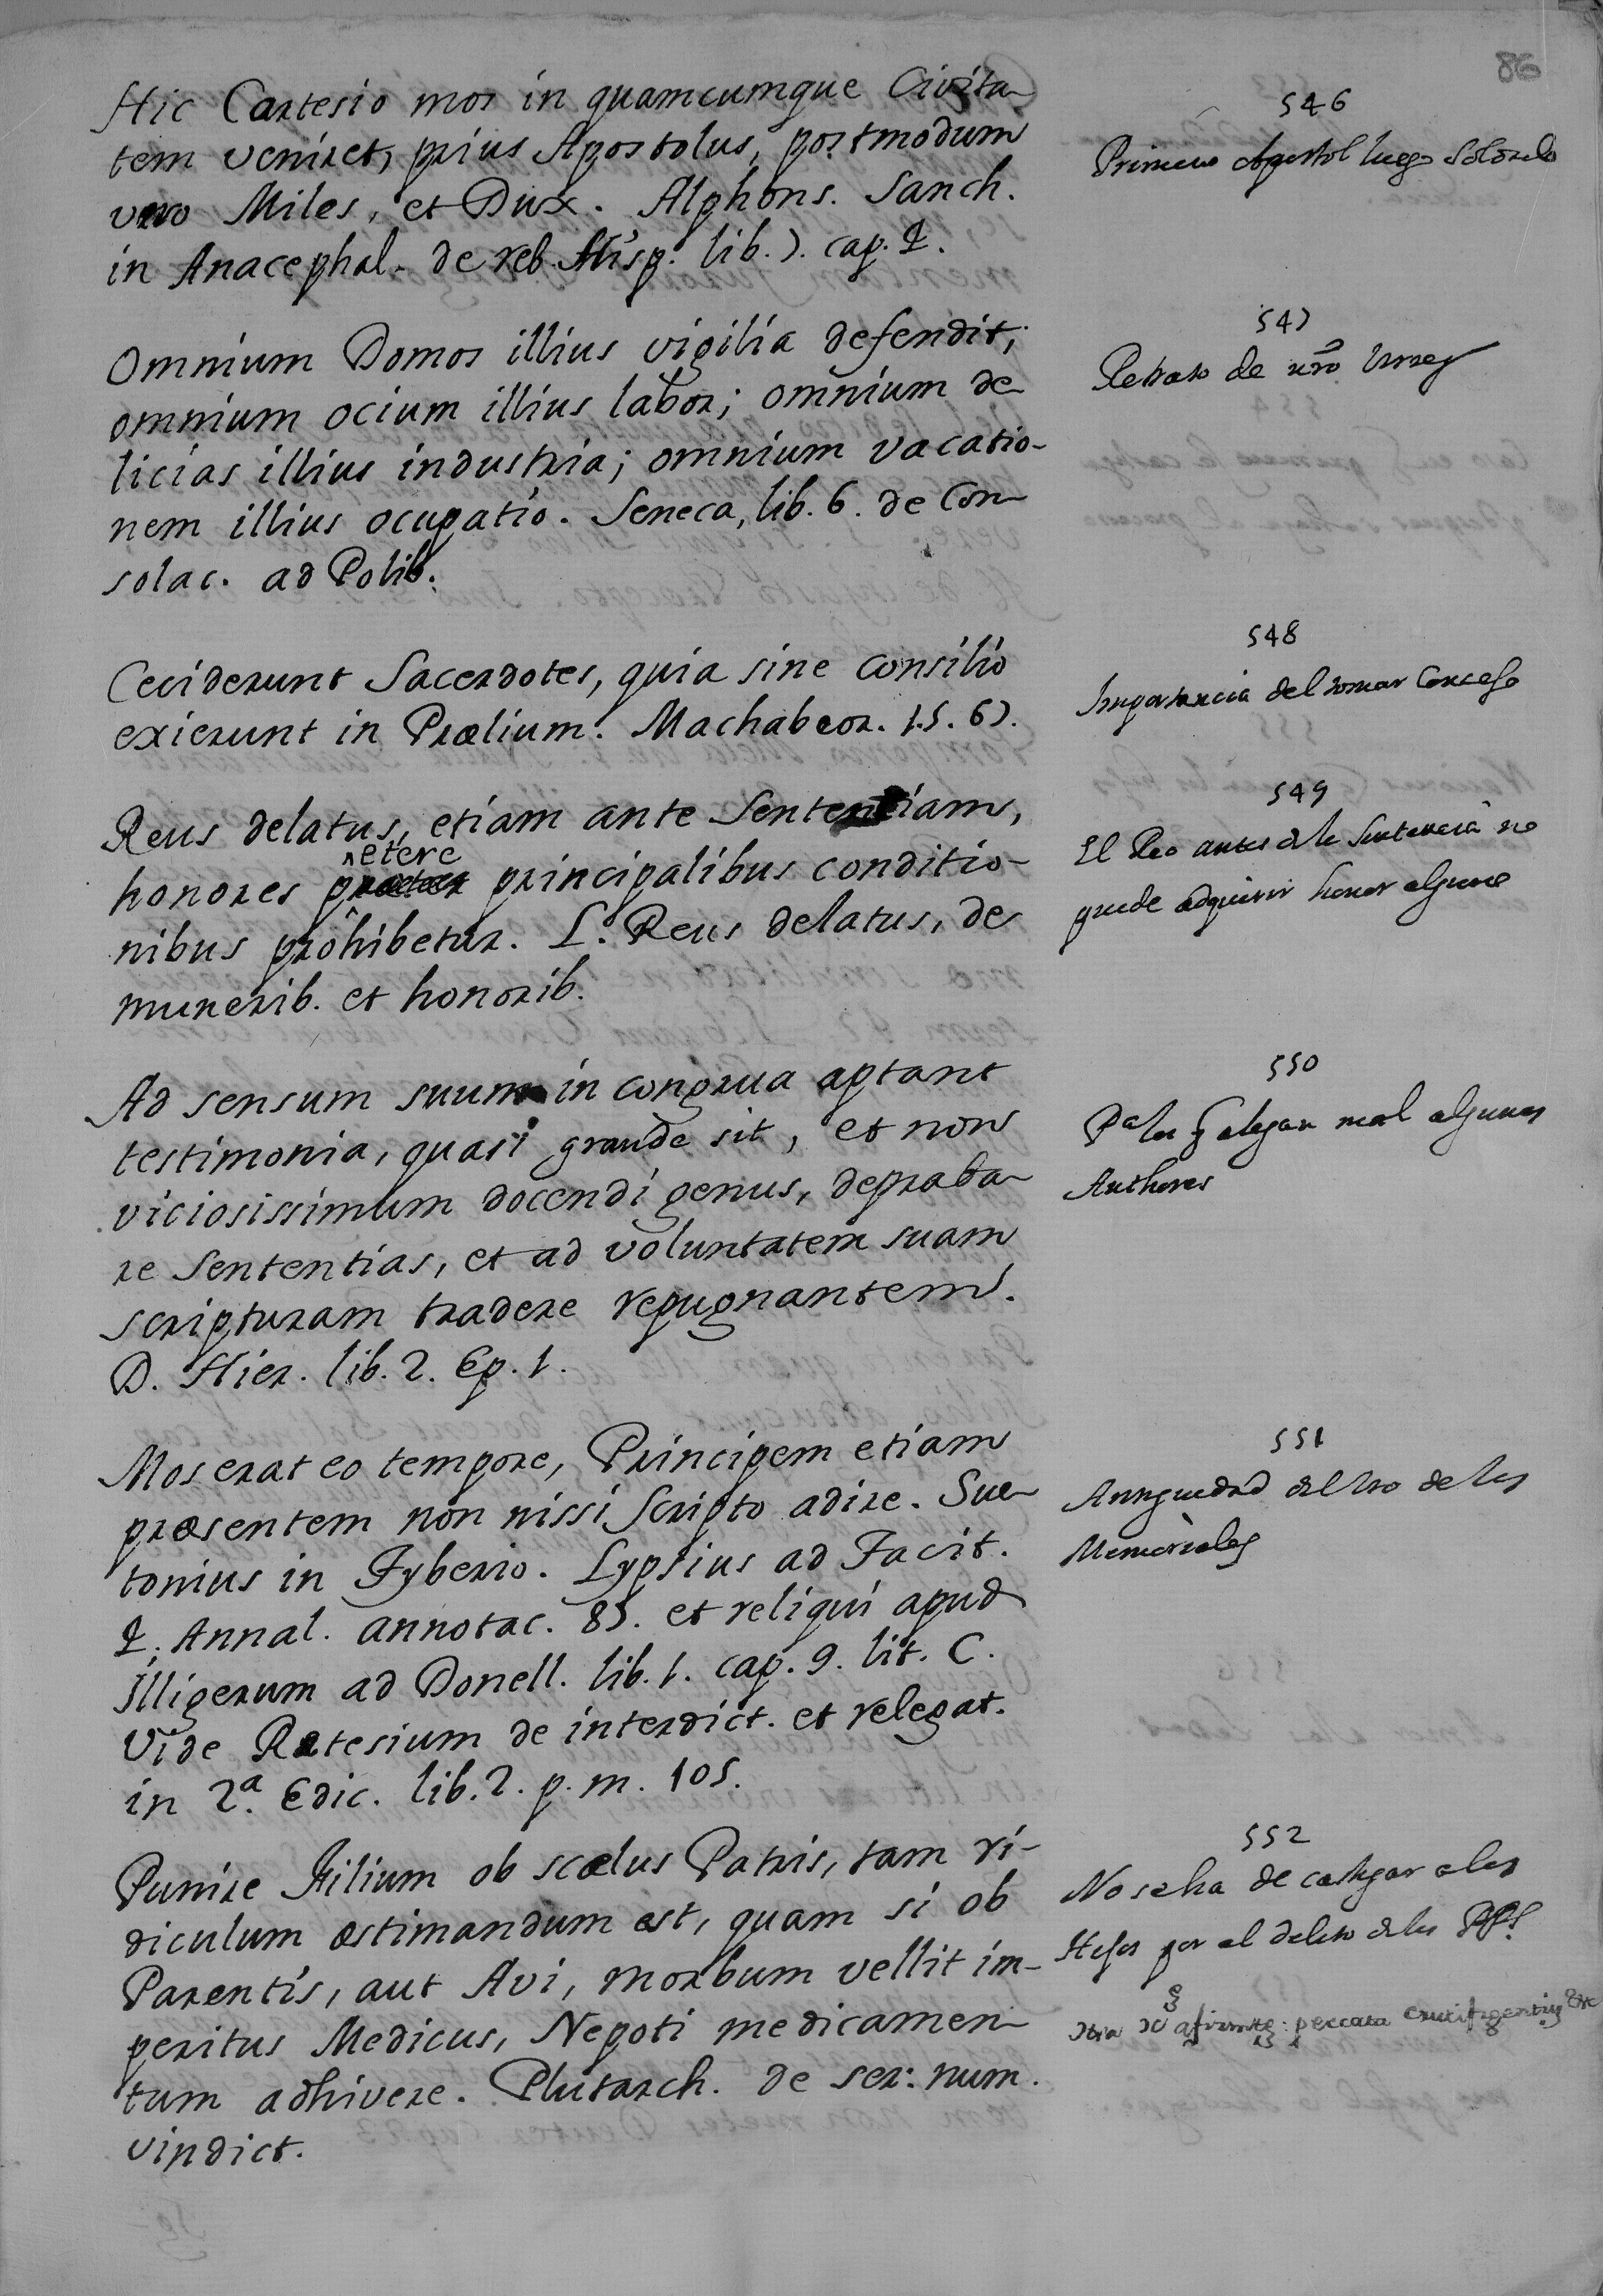 86
Hic Cartesio mos in quamcumque Civita-
tem veniret, prius Apostolus, postmodum
vero Miles, et Dux. Alphons. Sanch.
in Anacephal. de reb. Hisp. lib. 7. cap. 2.
546
Primero Apostol luego Soldado
Omnium Domos illius vigilia defendit;
omnium ocium illius labor; omnium de-
licias illius industria; omnium vacatio-
nem illius ocupatio. Seneca, lib. 6. de Con-
solac. ad Polib.
547
Retrato de nro Virrey
Ceciderunt Sacerdotes, quia sine consilio
exierunt in Prælium. Machabeor. 1.5.67.
548
Importancia del tomar Consejo
Reus delatus, etiam ante Sententiam,
honores petere principalibus conditio-
nibus prohibetur. L. Reus delatus, de
munerib. et honorib.
549
El Reo antes de la Sentencia no
puede adquirir honor alguno
Ad sensum suum in congrua aptant
testimonia, quasi grande sit, et non
viciosissimum docendi genus, depraba-
re Sententias, et ad voluntatem suam
scripturam tradere repugnantem.
D. Hier. lib. 2. Ep. 1.
550
Pa los q alegan mal algunos
Authores
Mos erat eo tempore, Principem etiam
præsentem non nissi Scripto adire. Sue-
tonius in Tyberio. Lypsius ad Tacit.
2. Annal. annotac. 87. et reliqui apud
Illigerum ad Donell. lib. 1. cap. 9. lit. C.
Vide Retesium de interdict. et relegat.
in 2.a Edic. lib. 2. p. m. 105.
551
Antiguedad del uso de los
Memoriales
Punire Filium ob scælus Patris, tam ri-
diculum æstimandum est, quam si ob
Parentis, aut Avi, morbum vellit im-
peritus Medicus, Nepoti medicamen-
tum adhivere. Plutarch. de ser. num.
vindict.
552
No se ha de castigar a los
Hijos por el delito de los PPs.
peccata